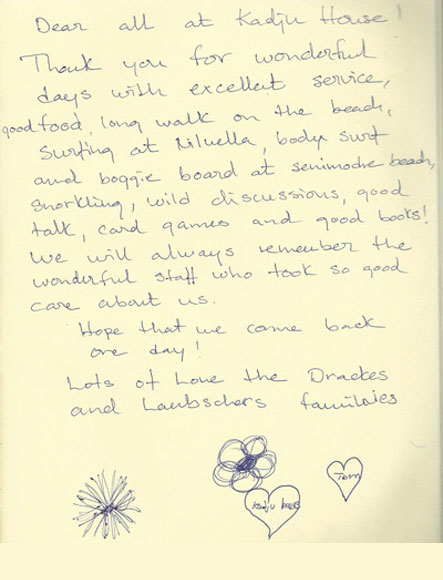 Dear all at Kadju House!
Thank you for wonderful
days with excellent service,
good food, long walk on the beach,
Surfing at Niluella, body surf
and boggie board at senimodre beach,
Snorkling, wild discussions, good
talk, card games and good books!
We will always remember the
wonderful staff who took so good
care about us.
Hope that we come back
one day!
Lots of Love the Drackes
and Laubschers familaies
Kadju House
Tom